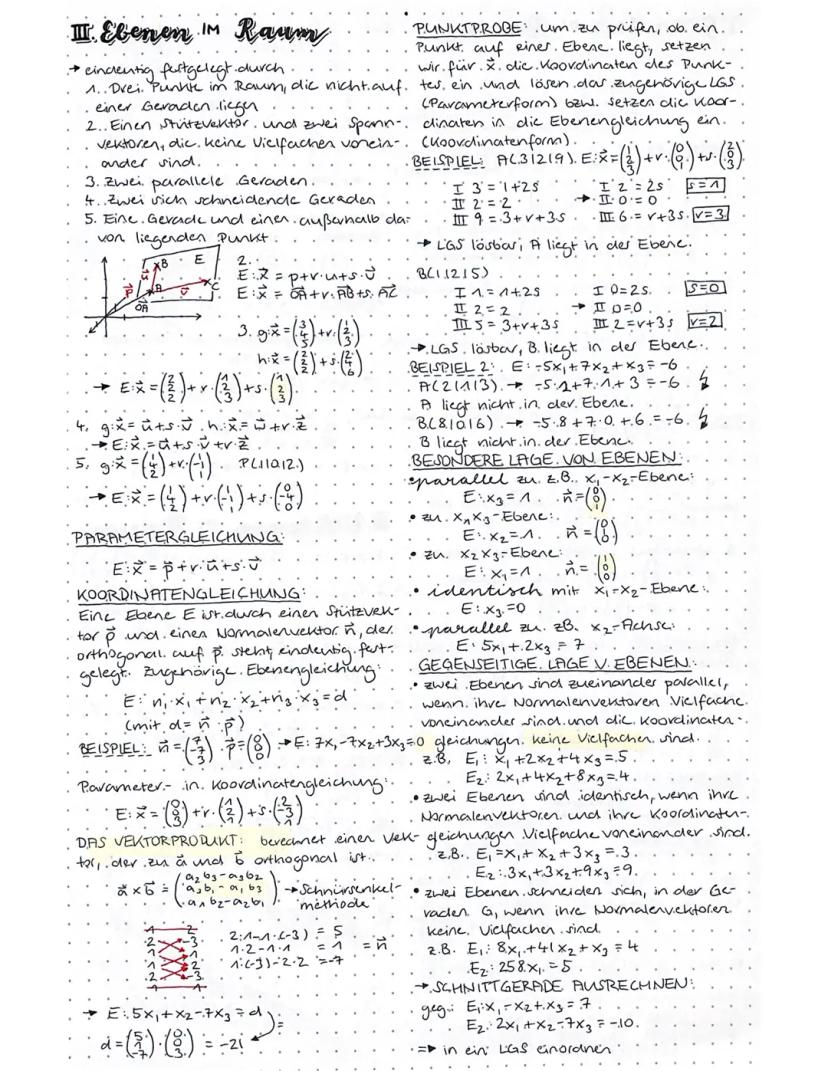 III. Ebenen IM Raum
→ eindeutig festgelegt durch
1. Drei Punkte im Raum, die nicht auf
einer Geraden liegen
2. Einen Stützvektor und zwei Spann-
vektoren, die keine Vielfachen vonein-
ander sind.
3. zwei parallele Geraden
4. zwei sich schneidende Geraden
5. Eine Gerade und einen außerhalb da-
von liegenden Punkt
B E
u⃗
p⃗ A v⃗ C
OA⃗
2.
E: x⃗ = p + r·u + s·v⃗
E: x⃗ = OA⃗ + r·AB⃗ + s·AC⃗
3. g: x⃗ = (3 4 5) + r·(1 2 3)
h: x⃗ = (2 2 2) + s·(2 4 6)
→ E: x⃗ = (2 2 2) + r·(1 2 3) + s·(1 2 3)
4. g: x⃗ = u⃗ + s·v⃗ h: x⃗ = w⃗ + r·z⃗
→ E: x⃗ = u⃗ + s·v⃗ + r·z⃗
5. g: x⃗ = (1 4 2) + r·(-1 -1 1) P(1|0|2)
→ E: x⃗ = (1 4 2) + r·(-1 -1 1) + s·(0 -4 0)
PARAMETERGLEICHUNG:
E: x⃗ = p⃗ + r·u⃗ + s·v⃗
KOORDINATENGLEICHUNG:
Eine Ebene E ist durch einen Stützvek-
tor p⃗ und einen Normalenvektor n⃗, der
orthogonal auf p⃗ steht, eindeutig fest-
gelegt. Zugehörige Ebenengleichung:
E: n₁·x₁ + n₂·x₂ + n₃·x₃ = d
(mit d = n⃗·p⃗)
BEISPIEL: n⃗ = (7 -7 3) p⃗ = (0 0 0) → E: 7x₁ - 7x₂ + 3x₃ = 0
Parameter- in Koordinatengleichung:
E: x⃗ = (0 0 3) + r·(1 2 1) + s·(2 -3 1)
DAS VEKTORPRODUKT: berechnet einen Vek-
tor, der zu a⃗ und b⃗ orthogonal ist.
a⃗ × b⃗ = (a₂b₃ - a₃b₂ a₃b₁ - a₁b₃ a₁b₂ - a₂b₁) → Schnürsenkel-
methode
1 2
2 -3
1 1
1 2
2 -3
1 1
2·1 - 1·(-3) = 5
1·2 - 1·1 = 1 = n⃗
1·(-3) - 2·2 = -7
→ E: 5x₁ + x₂ - 7x₃ = d
d = (5 1 -7)·(0 0 3) = -21
PUNKTPROBE: um zu prüfen, ob ein
Punkt auf einer Ebene liegt, setzen
wir für x⃗ die Koordinaten des Punk-
tes ein und lösen das zugehörige LGS
(Parameterform) bzw. setzen die Koor-
dinaten in die Ebenengleichung ein.
(Koordinatenform)
BEISPIEL: A(3|2|9) E: x⃗ = (1 2 3) + r·(0 0 1) + s·(2 0 3)
I 3 = 1 + 2s I 2 = 2s s = 1
II 2 = 2 → II 0 = 0
III 9 = 3 + r + 3s III 6 = r + 3s r = 3
→ LGS lösbar, A liegt in der Ebene.
B(1|2|5)
I 1 = 1 + 2s I 0 = 2s s = 0
II 2 = 2 → II 0 = 0
III 5 = 3 + r + 3s III 2 = r + 3s r = 2
→ LGS lösbar, B liegt in der Ebene.
BEISPIEL 2: E: -5x₁ + 7x₂ + x₃ = -6
A(2|1|3) → -5·2 + 7·1 + 3 = -6 ↯
A liegt nicht in der Ebene.
B(8|0|6) → -5·8 + 7·0 + 6 = -6 ↯
B liegt nicht in der Ebene
BESONDERE LAGE VON EBENEN:
• parallel zu z.B. x₁-x₂-Ebene:
E: x₃ = 1 n⃗ = (0 0 1)
• zu x₁x₃-Ebene:
E: x₂ = 1 n⃗ = (0 1 0)
• zu x₂x₃-Ebene:
E: x₁ = 1 n⃗ = (1 0 0)
• identisch mit x₁-x₂-Ebene:
E: x₃ = 0
• parallel zu zB. x₂-Achse:
E: 5x₁ + 2x₃ = 7
GEGENSEITIGE LAGE V. EBENEN:
• zwei Ebenen sind zueinander parallel,
wenn ihre Normalenvektoren Vielfache
voneinander sind und die Koordinaten-
gleichungen keine Vielfachen sind.
z.B. E₁: x₁ + 2x₂ + 4x₃ = 5
E₂: 2x₁ + 4x₂ + 8x₃ = 4
• zwei Ebenen sind identisch, wenn ihre
Normalenvektoren und ihre Koordinaten-
gleichungen Vielfache voneinander sind.
z.B. E₁ = x₁ + x₂ + 3x₃ = 3
E₂: 3x₁ + 3x₂ + 9x₃ = 9
• zwei Ebenen schneiden sich, in der Ge-
raden G, wenn ihre Normalenvektoren
keine Vielfachen sind
z.B. E₁: 8x₁ + 41x₂ + x₃ = 4
E₂: 258x₁ = 5
→ SCHNITTGERADE AUSRECHNEN:
geg.: E₁: x₁ - x₂ + x₃ = 7
E₂: 2x₁ + x₂ - 7x₃ = -10
=> in ein LGS einordnen